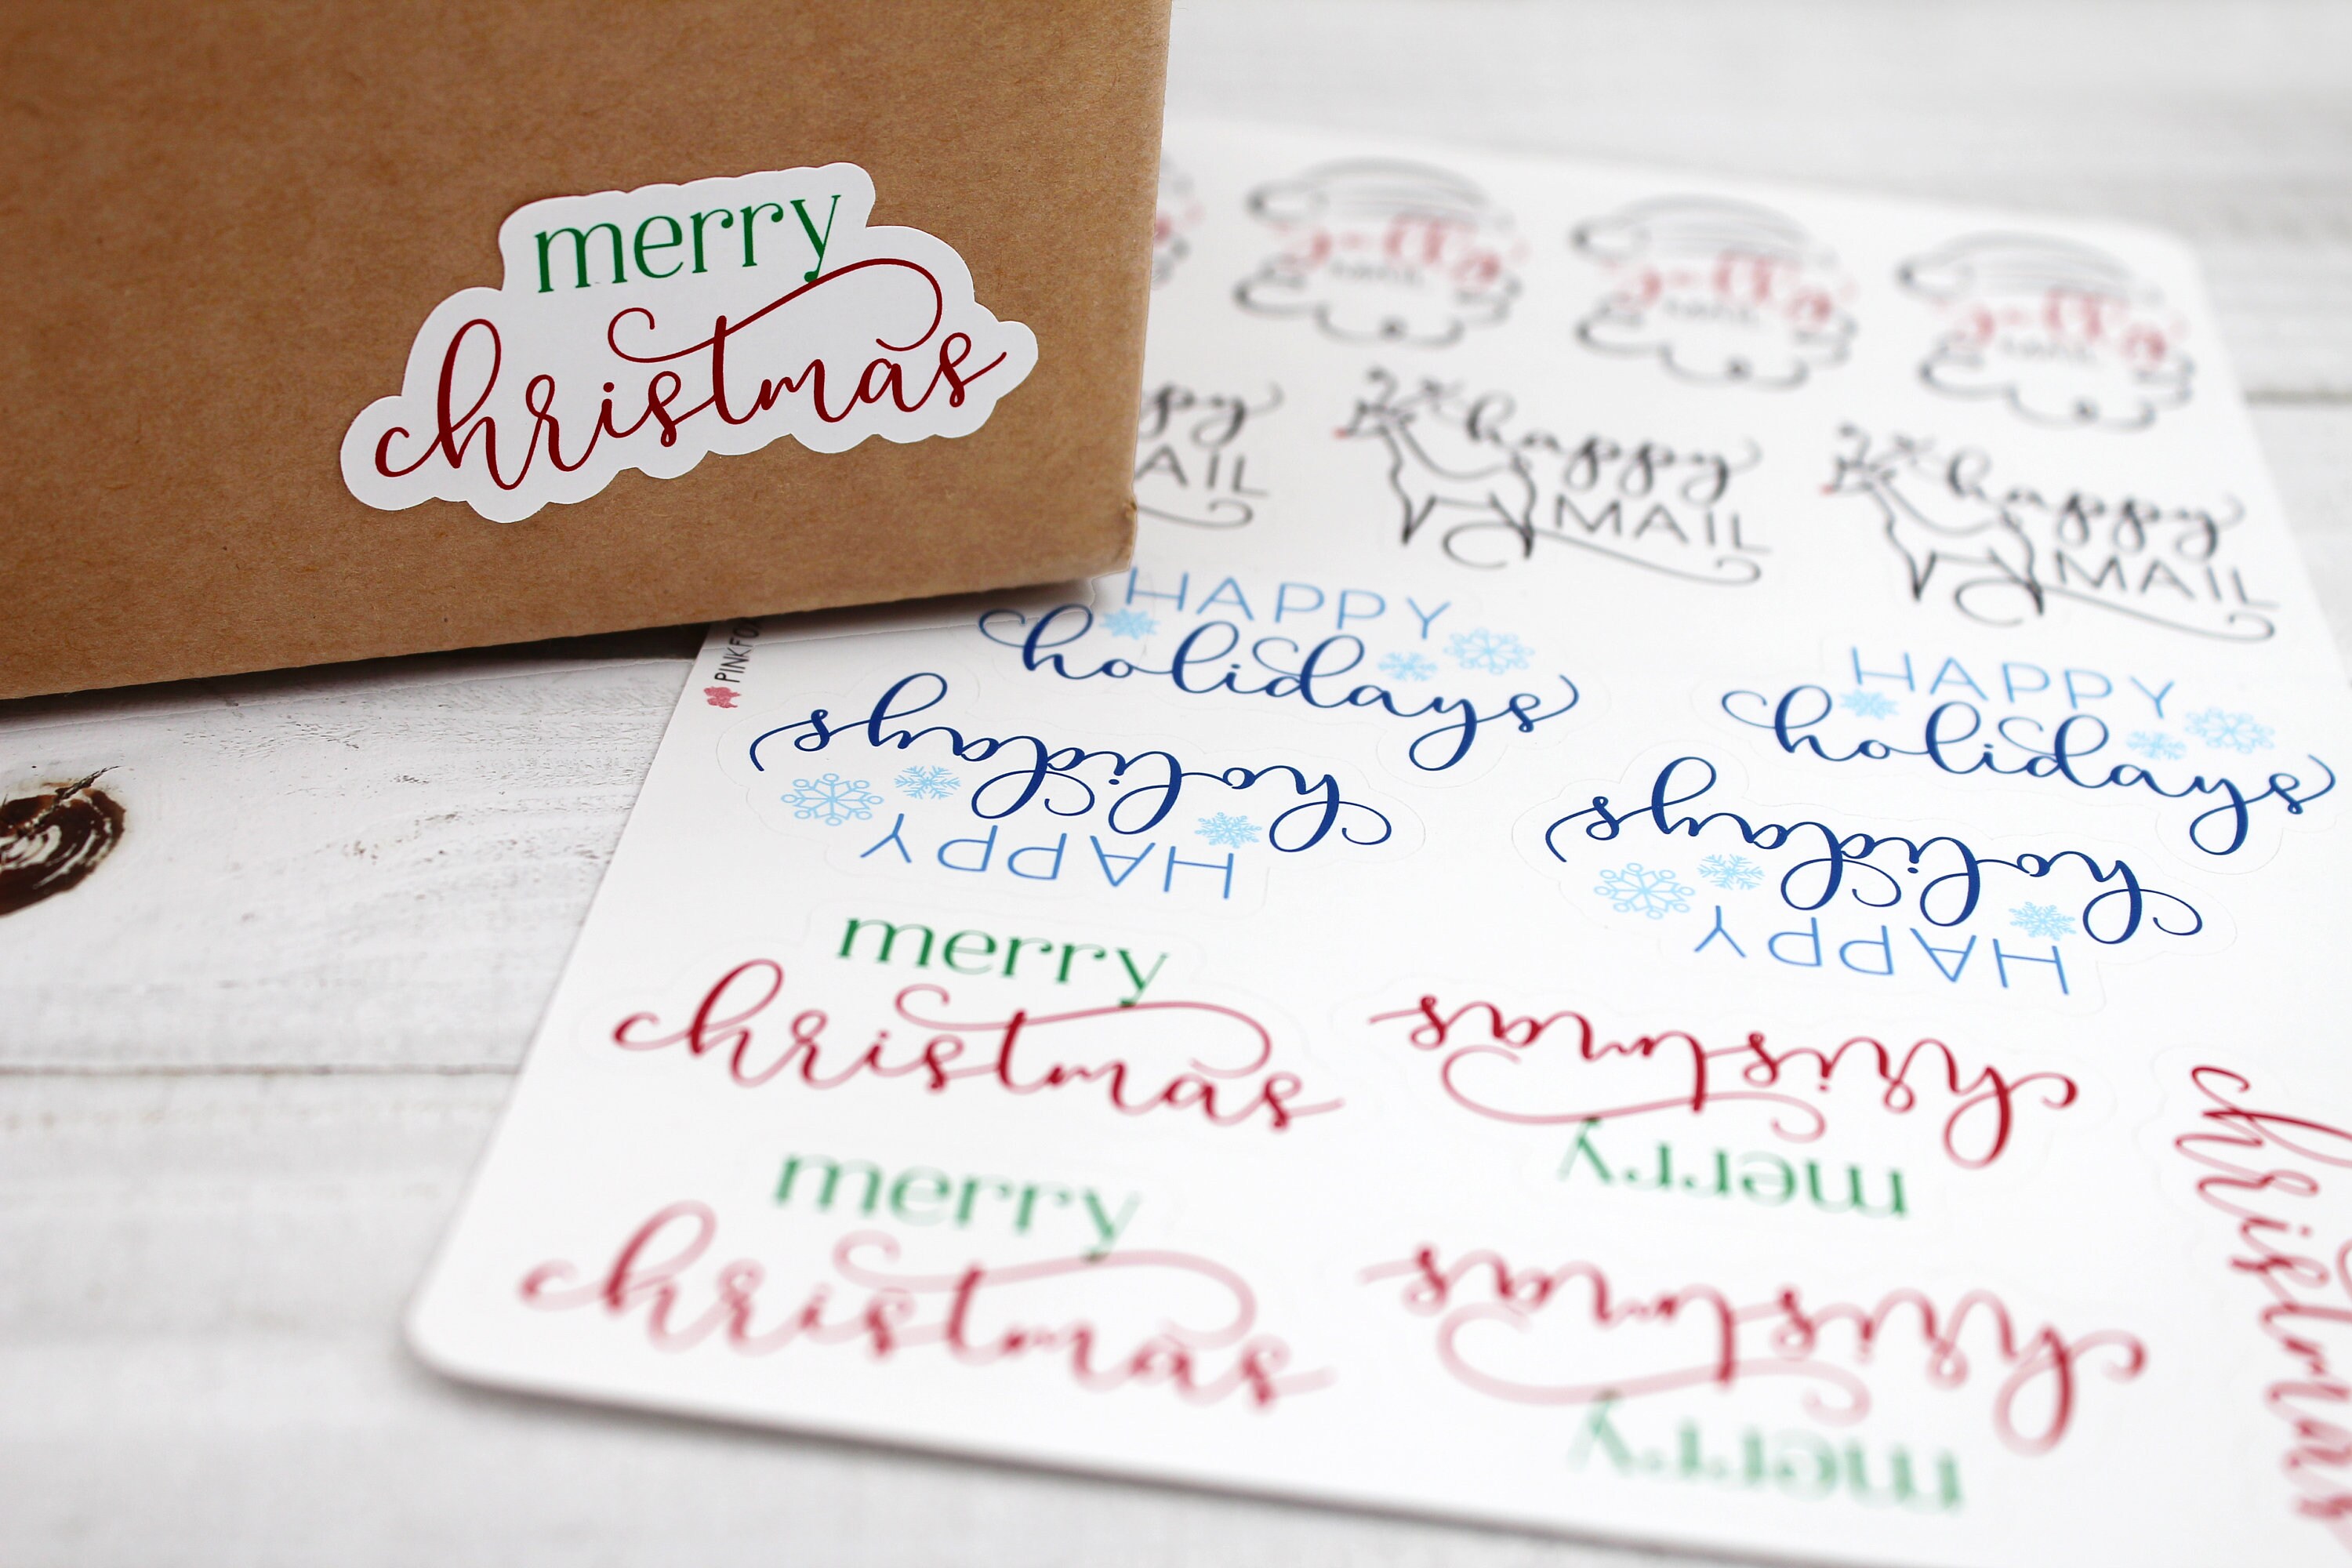 merry
christmas
jolly
jolly
jolly
happy
MAIL
happy
MAIL
PINKFO
HAPPY
holidays
HAPPY
holidays
HAPPY
holidays
HAPPY
holidays
merry
christmas
merry
christmas
merry
christmas
merry
christmas
christmas